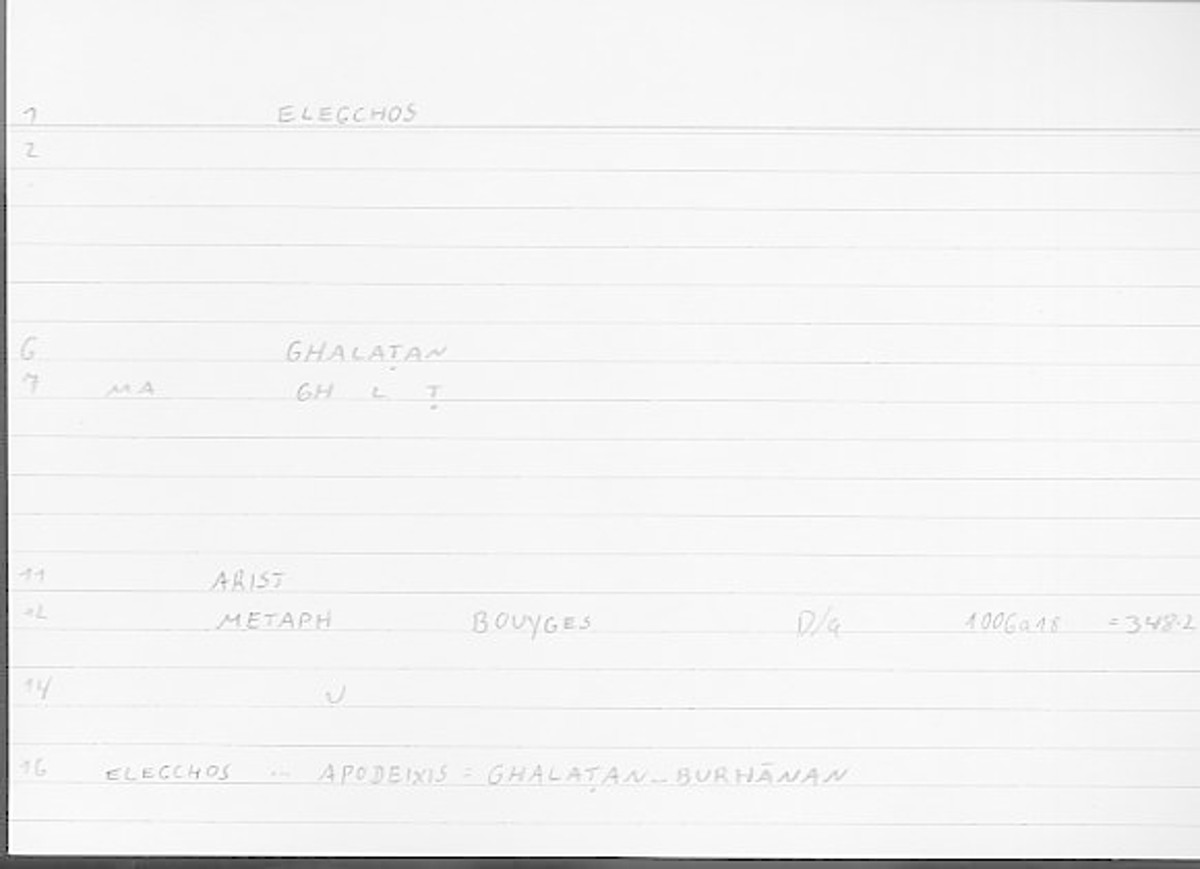 1 ELEGCHOS
2
6 GHALAṬAN
7 MA GH L Ṭ
11 ARIST
12 METAPH BOUYGES D/G 1006a18 =348.2
14 U
16 ELEGCHOS ... APODEIXIS = GHALAṬAN_BURHĀNAN